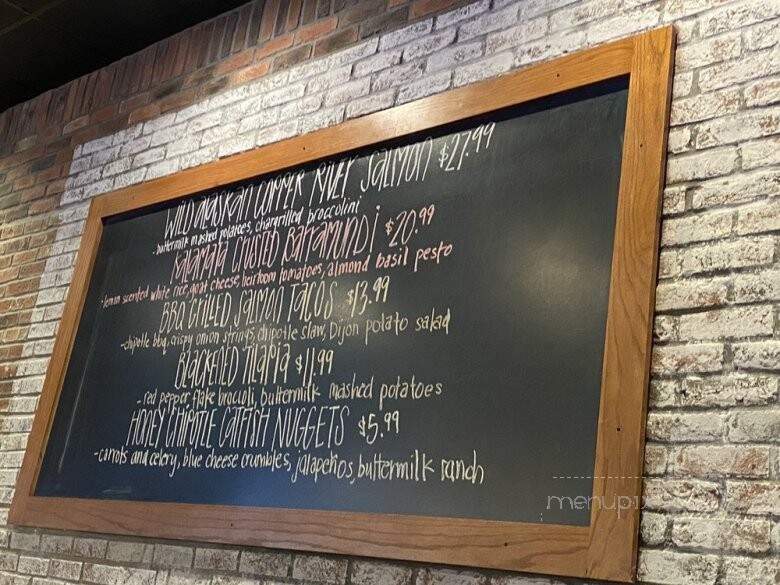 WILD ALASKAN COPPER RIVER SALMON $27.99
-buttermilk mashed potatoes, chargrilled broccolini
KALAMATA CRUSTED BARRAMUNDI $20.99
-lemon scented white rice, goat cheese, heirloom tomatoes, almond basil pesto
BBQ GRILLED SALMON TACOS $13.99
-chipotle bbq, crispy onion strings, chipotle slaw, Dijon potato salad
BLACKENED TILAPIA $11.99
-red pepper flake broccoli, buttermilk mashed potatoes
HONEY CHIPOTLE CATFISH NUGGETS $5.99
-carrots and celery, blue cheese crumbles, jalapeños, buttermilk ranch